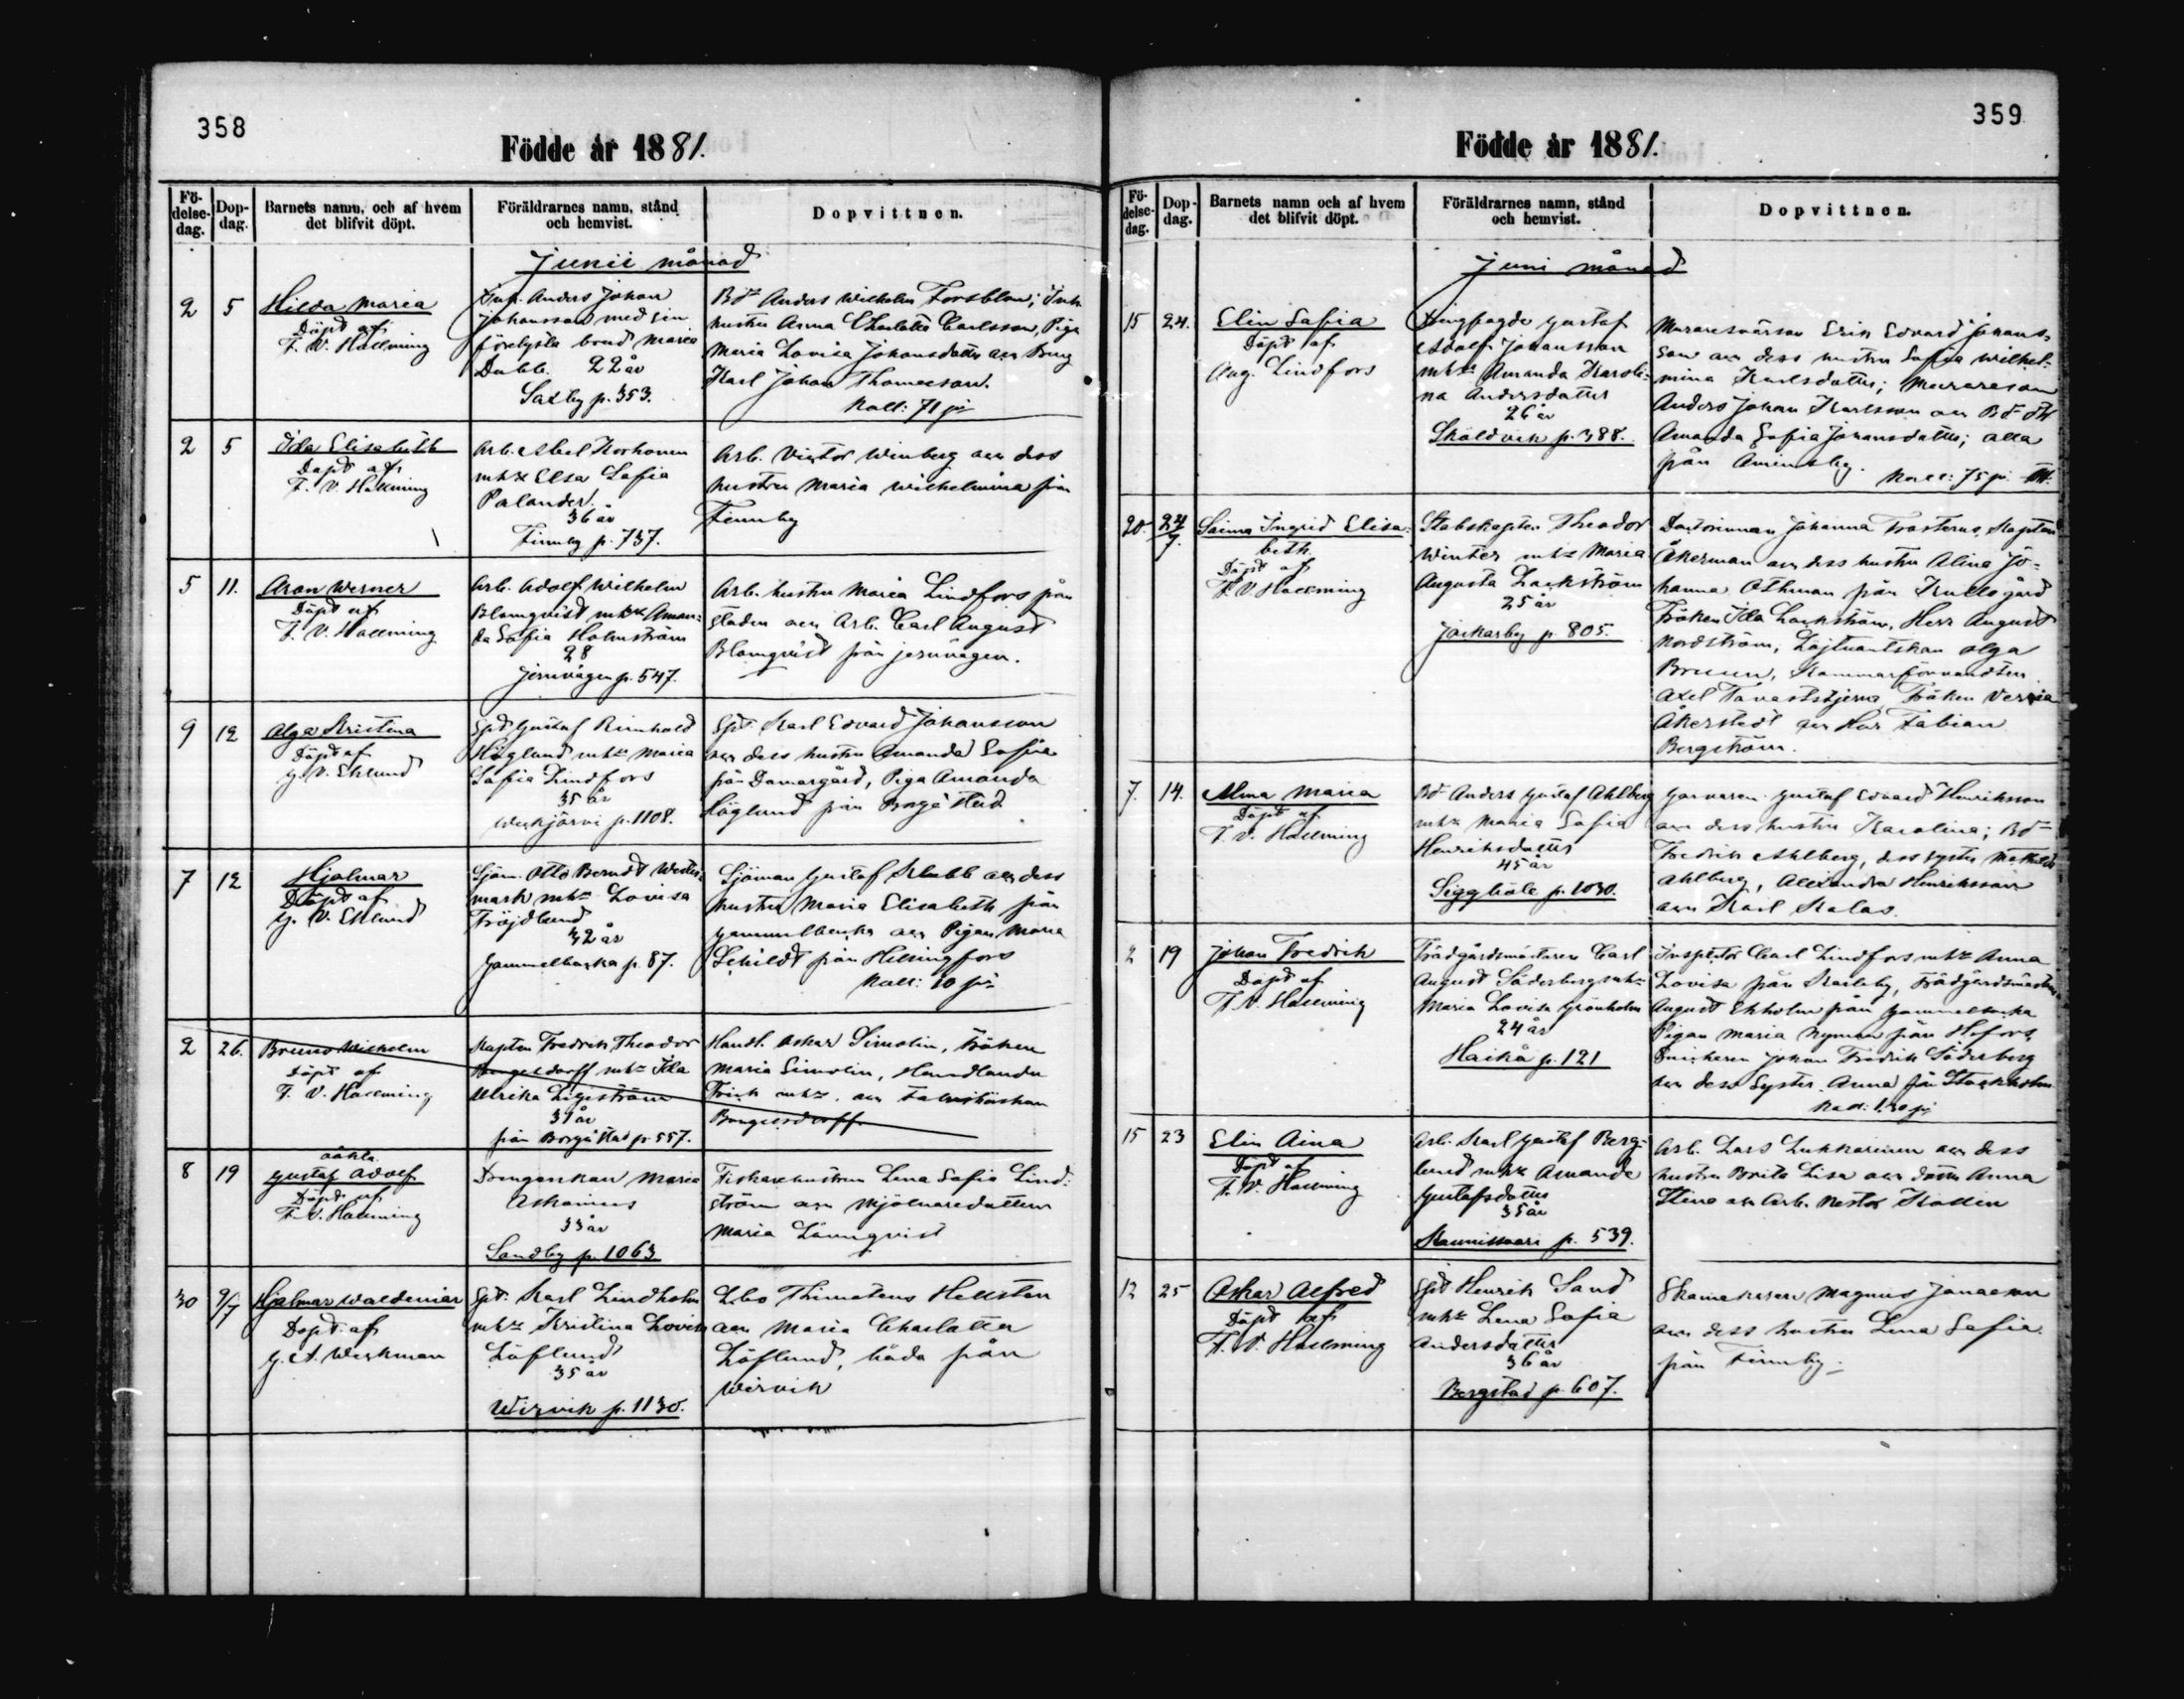 358
Födde år 1881.
Fö-
delse-
dag.
Dop-
dag.
Barnets namn, och af hvem
det blifvit döpt.
Föräldrarnes namn, stånd
och hemvist.
Dopvittnen.
Junii månad
2 5
Hilda Maria
Döpt af
F. V. Hallming
Anders Johan
Johansson med sin
förelysta brud Maria
Dubb. 22 år
Saxby p. 353.
Bd Anders Wilhelm Forsblom; Inh.
hustru Anna Charlotta Carlsson, Piga
Maria Lovisa Johansdotter och Dreng
Karl Johan Thomasson.
Koll: 71 pi
2 5
Ida Elisabeth
Döpt af
F. V. Hallming
Arb. Abel Korhonen
mhu Elsa Sofia
Palander.
36 år
Finnby p. 737.
Arb. Victor Winberg och dess
hustru Maria Wilhelmina från
Finnby
5 11.
Aron Werner
Döpt af
F. V. Hallming
Arb. Adolf Wilhelm
Blomqvist mhu Aman-
da Sofia Holmström
28
Jernvägen p. 547.
Arb. hustru Maria Lindfors från
staden och Arb. Carl August
Blomqvist från jernvägen.
9 12
Olga Kristina
Döpt af
G. V. Eklund
Gustaf Reinhold
Höglund mhu Maria
Sofia Lindfors
35 år
Weckjärvi p. 1108.
Karl Edvard Johansson
och dess hustru Amanda Sofia
från Domargård, Piga Amanda
Höglund från Borgå stad
7 12
Hjalmar
Döpt af
G. V. Eklund
Sjöm. Otto Berndt Wester-
mark mhu Lovisa
Fröjdlund
42 år
Gammelbacka p. 87.
Sjöman Gustaf Stubb och dess
hustru Maria Elisabeth från
Gammelbacka och Pigan Maria
Schildt från Helsingfors
Koll: 10 pi
2 26.
Bruno Wilhelm
Döpt af
F. V. Hallming
Kapten Fredrik Theodor
mhu Ida
Ulrika Ligeström
31 år
från Borgå stad p. 557.
Handl. Oskar Simolin, Fröken
Maria Simolin, Handlanden
Frick mhu. och
8 19
oäkta
Gustaf Adolf
Döpt af
F. V. Hallming
Drengenkan Maria
Askonius
33 år
Sandby p. 1063
Fiskarehustrun Lena Sofia Lind-
ström och Mjölnaredottern
Maria Lönnqvist
30 9/7
Hjalmar Waldemar
Döpt af
G. A. Werkman
Karl Lindholm
mhu Kristina Lovisa
Löflund
35 år
Wirvik p. 1130.
Thimoteus Hellsten
och Maria Charlotta
Löflund, båda från
Wirvik
359
Födde år 1881.
Fö-
delse-
dag.
Dop-
dag.
Barnets namn och af hvem
det blifvit döpt.
Föräldrarnes namn, stånd
och hemvist.
Dopvittnen.
Juni månad
15 24.
Elin Sofia
Döpt af
Aug. Lindfors
Gustaf
Adolf Johansson
mhu Amanda Karoli-
na Andersdotter
26 år
Sköldvik p. 388.
Muraresvärson Erik Edvard Johans-
son och dess hustru Sofia Wilhel-
mina Karlsdotter; Murareson
Anders Johan Karlsson och Bd
Amanda Sofia Johansdotter; alla
från
Koll: 75 pi
20. 24/7.
Saima Ingrid Elisa-
beth
Döpt af
F. V. Hallming
Stabskapten Theodor
Winter mhu Maria
Augusta Lackström
25 år
Jackarby p. 805.
Doktorinnan Johanna Trosterus, Kapten
Åkerman och dess hustru Alina Jo-
hanna Othman från Kulla gård
Fröken Ida Lackström, Herr August
Nordström, Löjtnantskan Olga
Bruun, Kammarförvandten
Axel Tavaststjerna, Fröken
Åkerstedt och Herr Fabian
Bergström.
7. 14.
Alma Maria
Döpt af
F. V. Hallming
Bd Anders Gustaf Ahlberg
mhu Maria Sofia
Henriksdotter
45 år
Siggböle p. 1030.
Garvaren Gustaf Edvard Henriksson
och dess hustru Karolina; Bd
Fredrik Ahlberg, dess syster Mathilda
Ahlberg, Alexandra Henriksson
och Karl Kalas.
2 19
Johan Fredrik
Döpt af
F. V. Hallming
Trädgårdsmästaren Carl
August Söderberg mhu
Maria Lovisa Grönholm
24 år
Haikå p. 121
Inspektor Carl Lindfors mhu Anna
Lovisa från Karleby, Trädgårdsmästare
August Ekholm från Gammelbacka
Pigan Maria Nyman från H:fors,
Snickaren Johan Fredrik Söderberg
och dess syster Anna från Stockholm
Koll: 1.20 pi
15 23
Elin Aina
Döpt af
F. V. Hallming
Arb. Karl Gustaf Berg-
lund mhu Amanda
Gustafsdotter
35 år
Kaunissaari p. 539.
Arb. Lars Lukkarinen och dess
hustru Brita Lisa och dotter Anna
Stina och Arb. Nestor Kollin
12 25
Oskar Alfred
Döpt af
F. V. Hallming
Henrik Sand
mhu Lena Sofia
Andersdotter
36 år
Bergstad p. 607.
Skomakaren Magnus Jonasson
och dess hustru Lena Sofia
från Finnby.